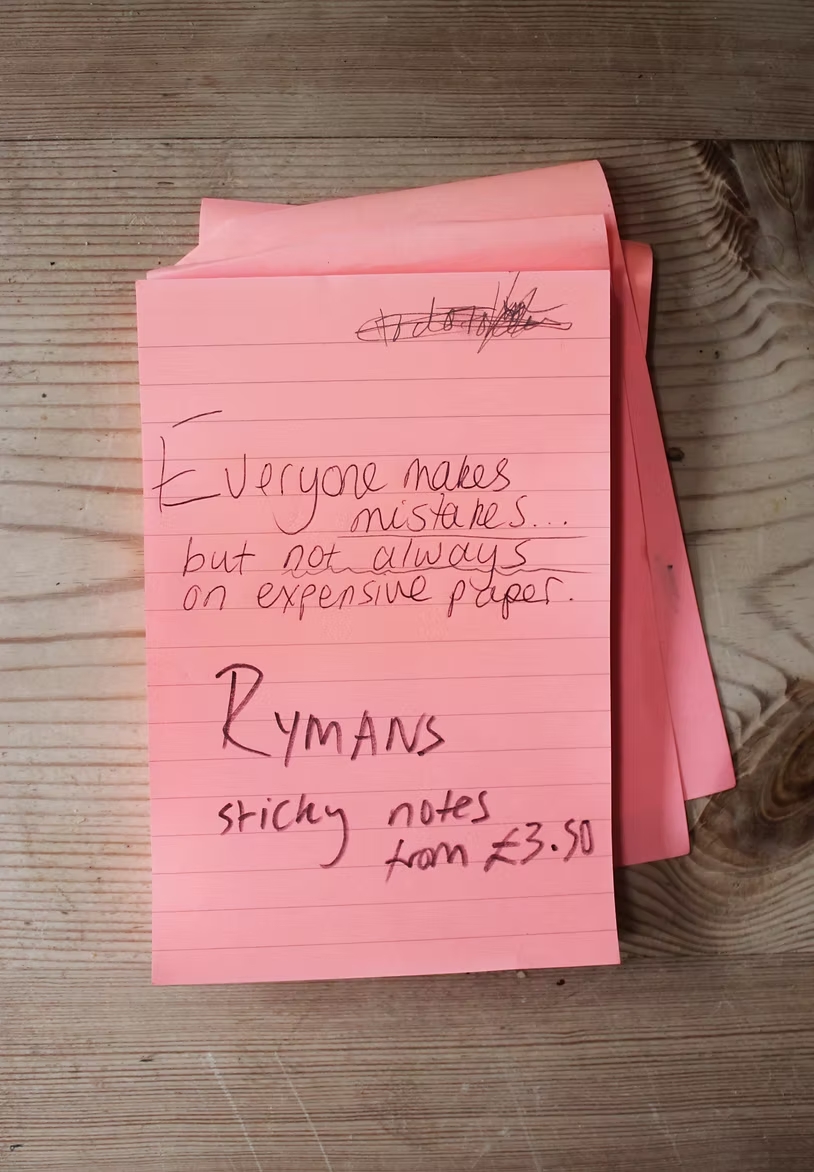 Everyone makes
mistakes...
but not always
on expensive paper.
RYMANS
sticky notes
from £3.50